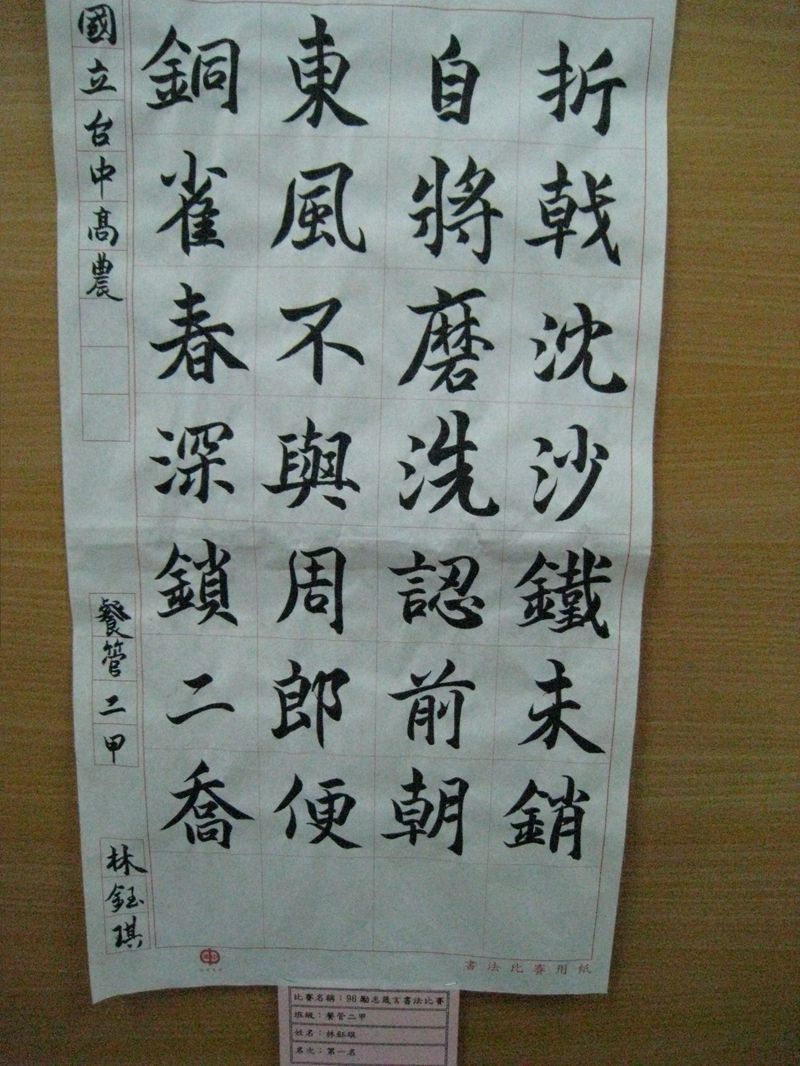 折戟沈沙鐵未銷
自將磨洗認前朝
東風不與周郎便
銅雀春深鎖二喬
國立台中高農
餐管二甲
林鈺琪
書法比賽用紙
比賽名稱：98勵志箴言書法比賽
班級：餐管二甲
姓名：林鈺琪
名次：第一名